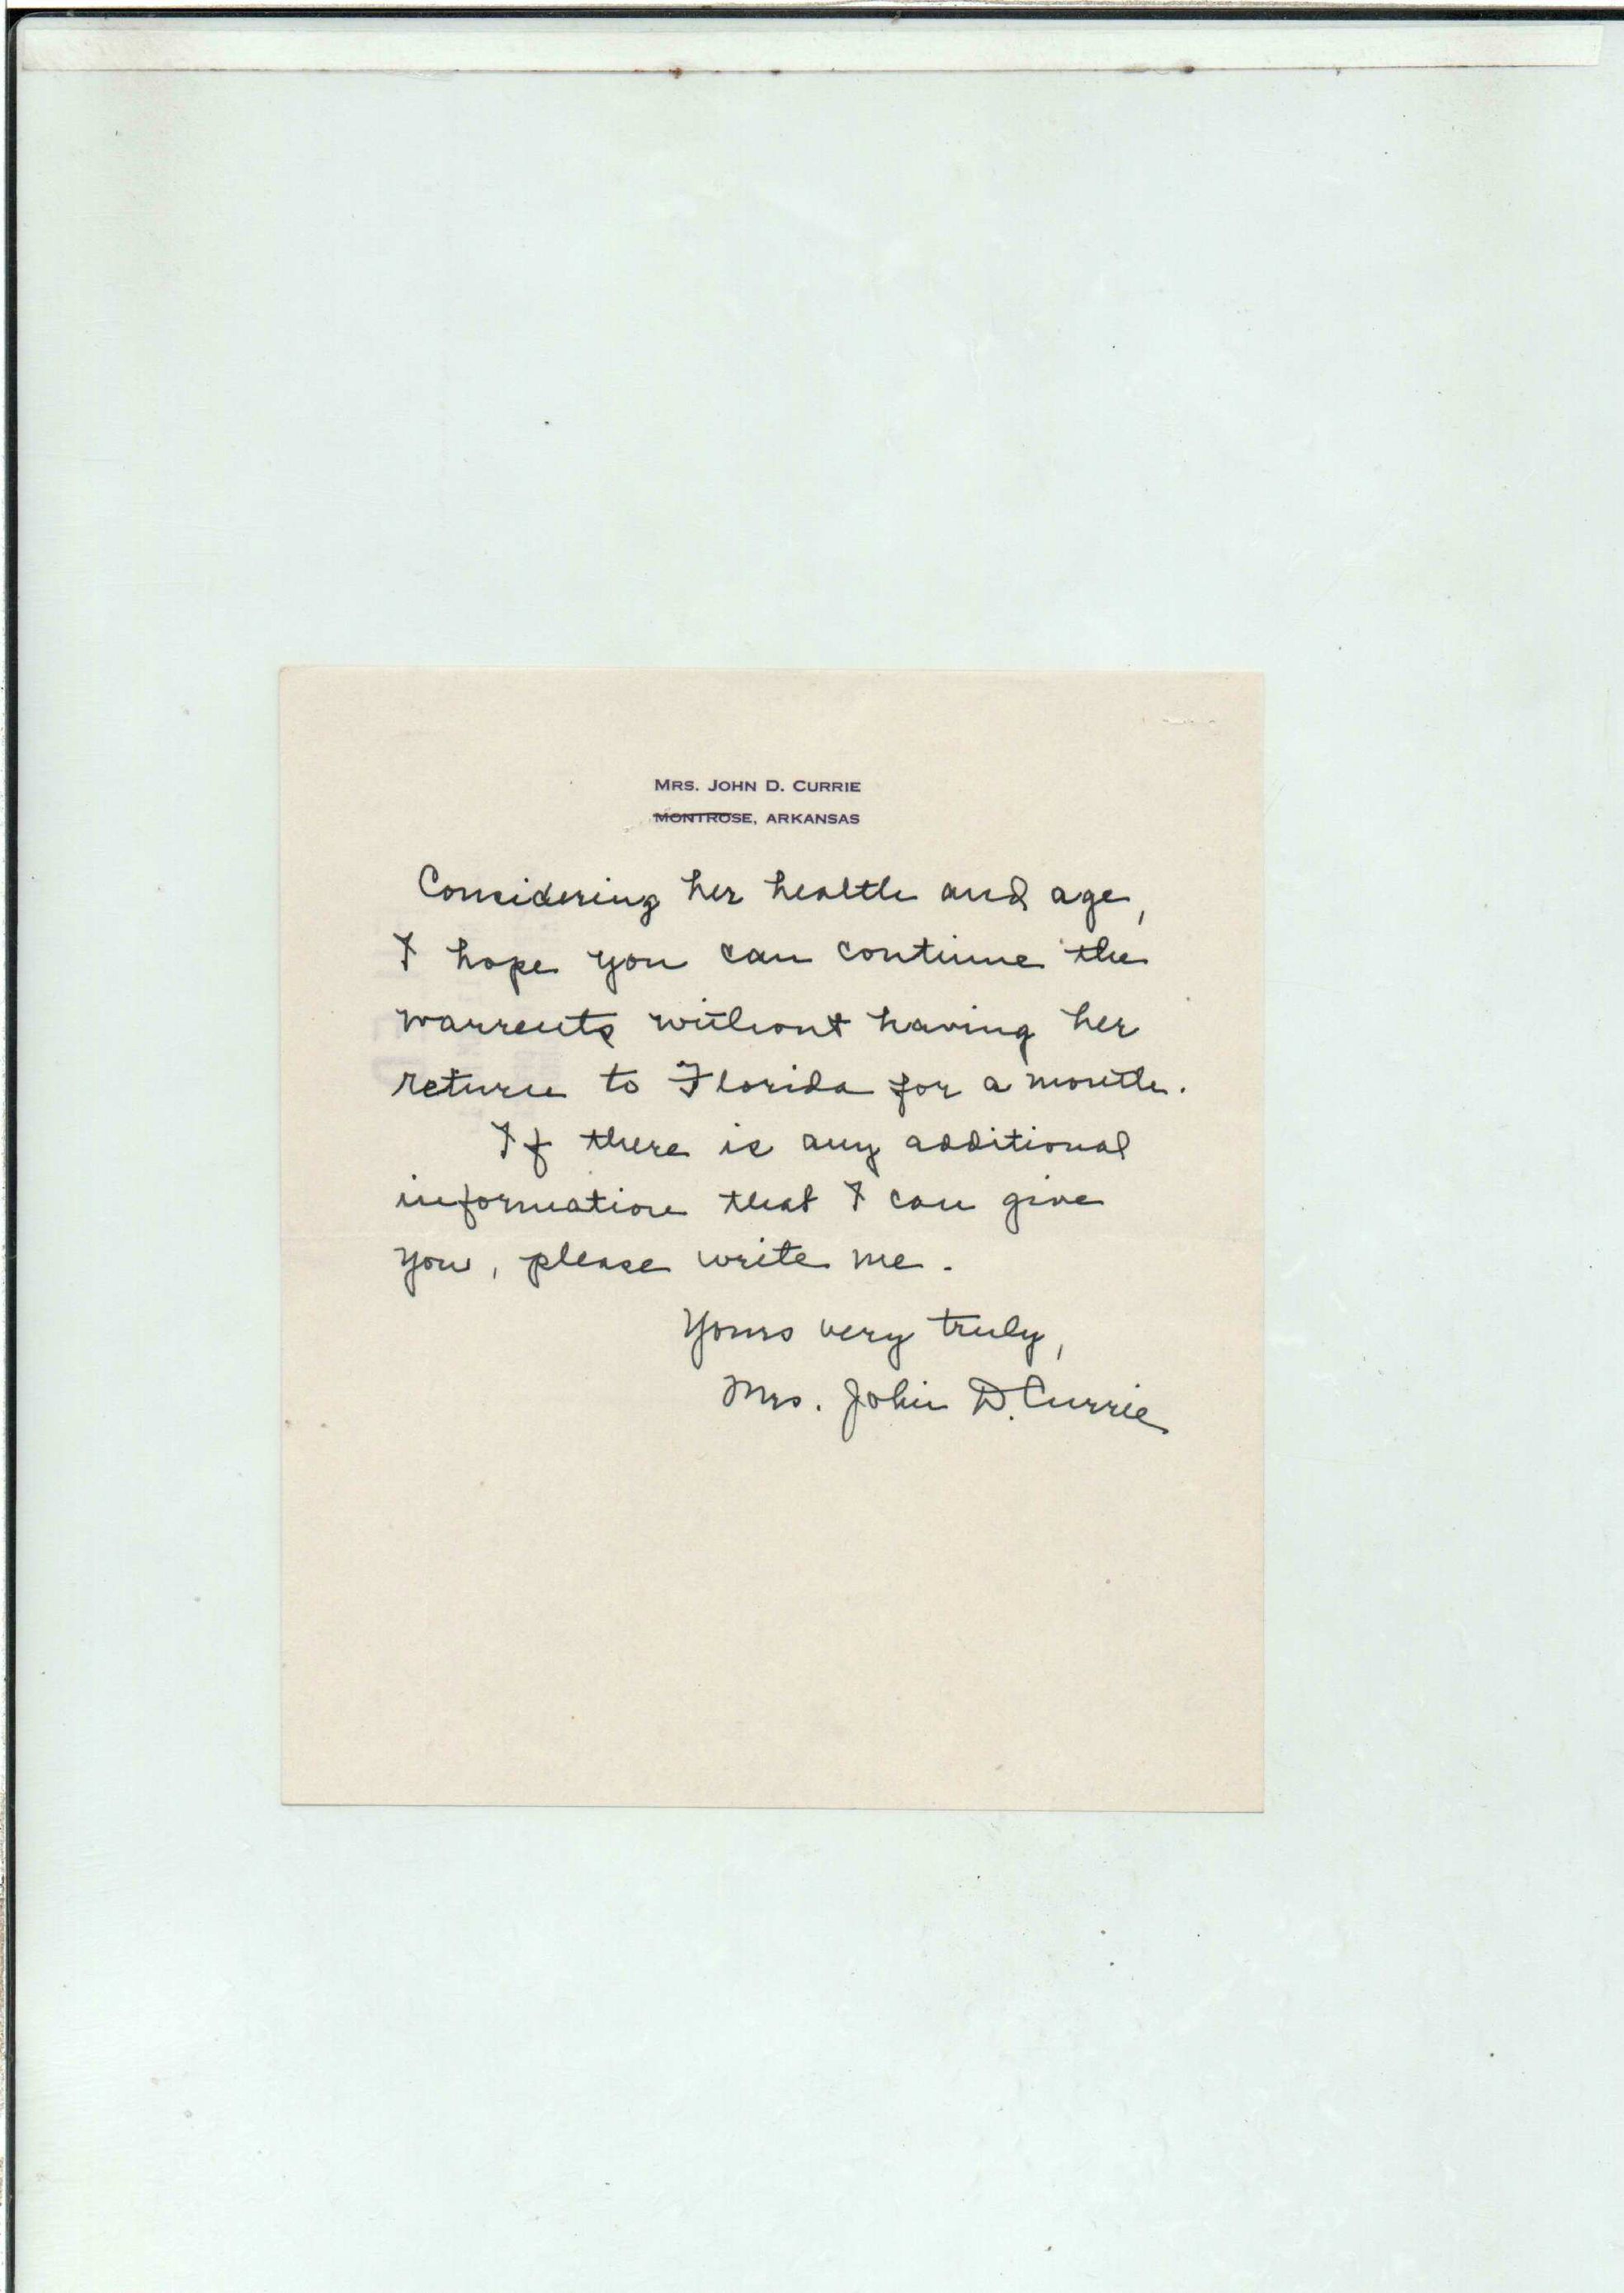 MRS. JOHN D. CURRIE
MONTROSE, ARKANSAS
Considering her health and age,
I hope you can continue the
warrents without having her
return to Florida for a month.
If there is any additional
information that I can give
you, please write me.
Yours very truly,
Mrs. John D. Currie